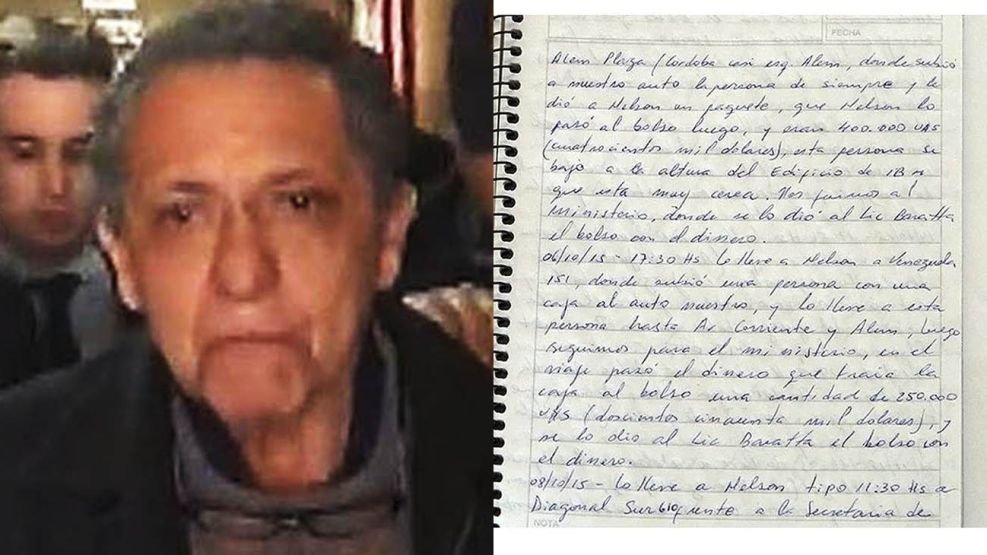 FECHA
Alem Plaza (Cordoba casi esq. Alem, donde subió
a nuestro auto la persona de siempre y le
dió a Nelson un paquete, que Nelson lo
pasó al bolso luego, y eran 400.000 U$S
(cuatrocientos mil dolares), esta persona se
bajo a la altura del Edificio de IBM
que esta muy cerca. Nos fuimos al
ministerio, donde se lo dió al Lic Baratta
el bolso con el dinero.
06/10/15 - 17:30 Hs lo lleve a Nelson a Venezuela
151, donde subió una persona con una
caja al auto nuestro, y lo lleve a esta
persona hasta Av Corriente y Alem, luego
seguimos para el ministerio, en el
viaje pasó el dinero que traia la
caja al bolso una cantidad de 250.000
U$S (doscientos cincuenta mil dolares), y
se lo dio al Lic Baratta el bolso con
el dinero.
08/10/15 - Lo lleve a Nelson tipo 11:30 Hs a
Diagonal Sur 610 frente a la Secretaria de
NOTA